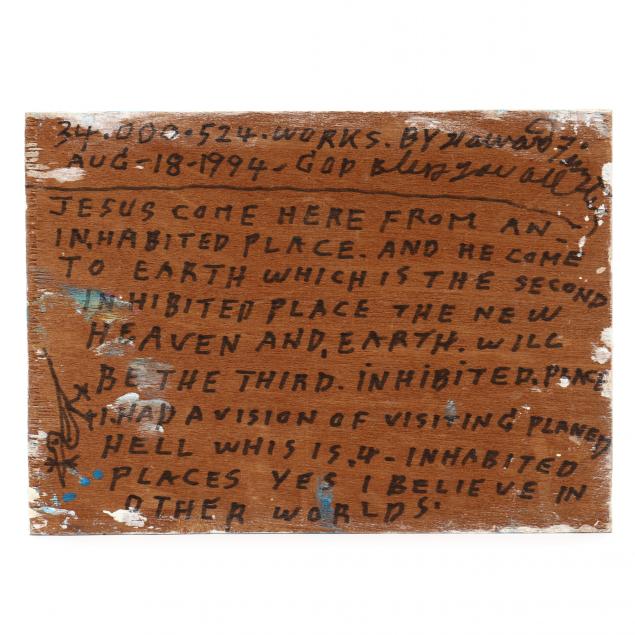 34.000.524.WORKS. BY Howard F.
AUG-18-1994- GOD Bless you all
JESUS COME HERE FROM AN-
IN,HABITED PLACE. AND HE COME
TO EARTH WHICH IS THE SECOND
INHIBITED PLACE THE NEW
HEAVEN AND, EARTH. WILL
BE THE THIRD. INHIBITED. PLACE
I. HAD A VISION OF VISITING PLANED
HELL WHIS IS.4- INHABITED
PLACES YES I BELIEVE IN
OTHER WORLDS.